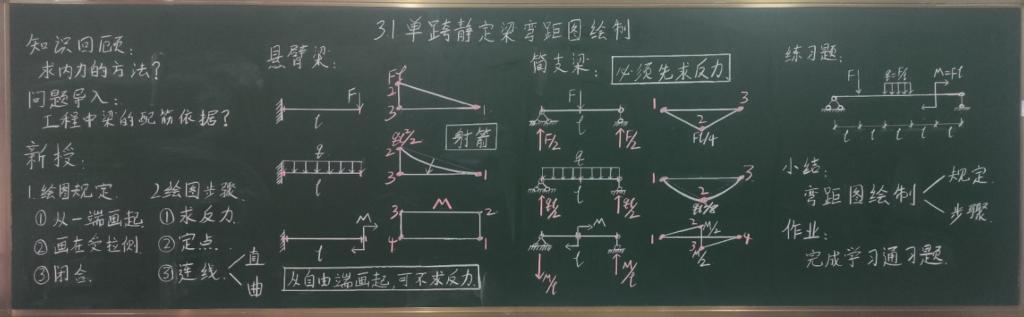 31 单跨静定梁弯距图绘制
知识回顾:
求内力的方法?
问题导入:
工程中梁的配筋依据?
新授:
1.绘图规定
①从一端画起
②画在受拉侧
③闭合.
2.绘图步骤
①求反力
②定点.
③连线
直
曲
悬臂梁:
F
l
Fl
2
3
1
q
l
ql²/2
2
3
1
射箭
M
l
M
3
2
4
1
从自由端画起,可不求反力
简支梁:
必须先求反力
F
l
F/2
F/2
1
3
2
Fl/4
q
l
ql/2
ql/2
1
3
2
ql²/8
M
l
M/l
M/l
M/2
2
1
4
3
M/2
练习题:
F
q=F/l
M=Fl
l
l
l
l
l
小结:
弯距图绘制
规定
步骤
作业:
完成学习通习题.